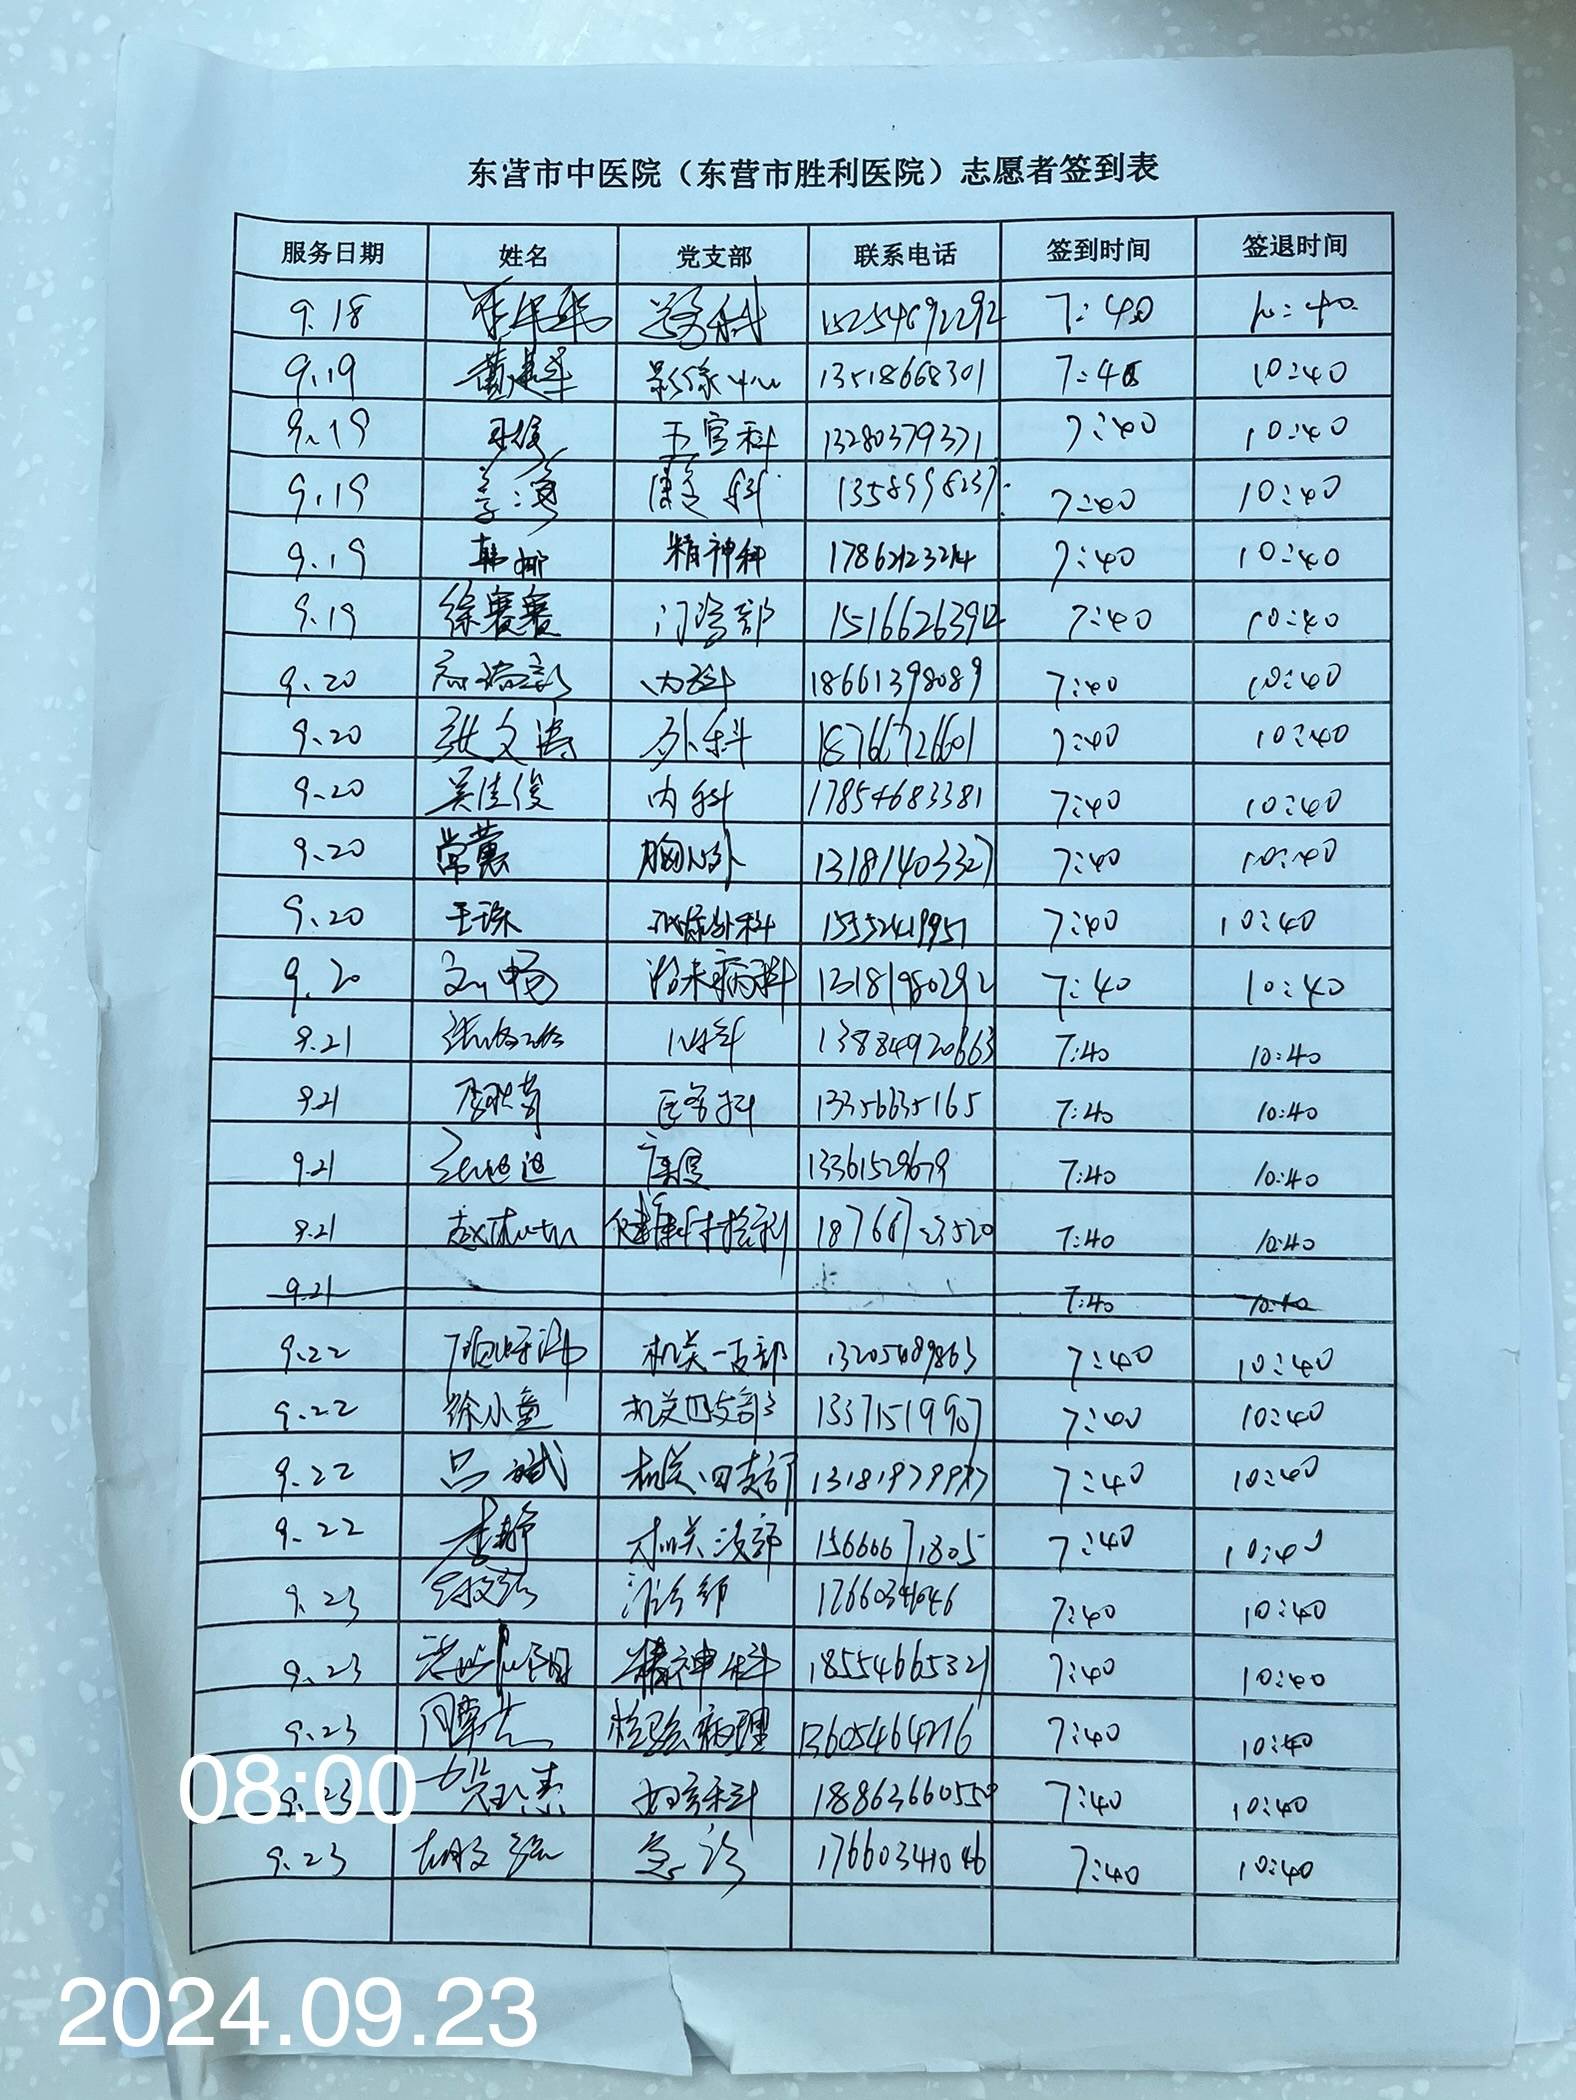 东营市中医院（东营市胜利医院）志愿者签到表
服务日期 姓名 党支部 联系电话 签到时间 签退时间
9.18 15254692292 7:40 10:40
9.19 黄建华 影像中心 13518668301 7:40 10:40
9.19 王俊 五官科 13280379371 7:40 10:40
9.19 李海 康复科 13589998237 7:40 10:40
9.19 韩娜 精神科 17862123214 7:40 10:40
9.19 徐赛赛 门诊部 7:40 10:40
9.20 内科 18661398089 7:40 10:40
9.20 张文涛 外科 18766726601 7:40 10:40
9.20 吴佳俊 内科 17854683381 7:40 10:40
9.20 常蕙 胸外 13181403327 7:40 10:40
9.20 王琛 泌尿外科 7:40 10:40
9.20 刘畅 治未病科 13181980292 7:40 10:40
9.21 13884920663 7:40 10:40
9.21 医务科 13356635165 7:40 10:40
9.21 康复 13361529679 7:40 10:40
9.21 健康体检科 18766723520 7:40 10:40
9.21 7:40 10:40
9.22 机关一支部 13205489863 7:40 10:40
9.22 徐小童 机关四支部 13371519907 7:40 10:40
9.22 吕斌 机关四支部 7:40 10:40
9.22 李静 15666671805 7:40 10:40
9.23 7:40 10:40
9.23 精神科 18554665321 7:40 10:40
9.23 检验病理 13605464276 7:40 10:40
08:00
9.23 妇产科 18863660550 7:40 10:40
9.23 胡文强 急诊 17660341046 7:40 10:40
2024.09.23